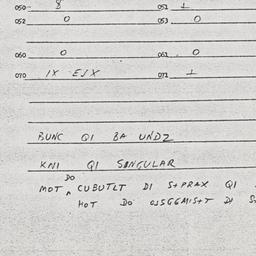 050 8 051 1
052 0 053 0
060 0 061 0
070 IX ESX 071 1
BUNC QI BA UNDZ
KNI QI SINGULAR
DO
MOT ^ CUBUTLT DI S+PRAX QI
HOT DO DI